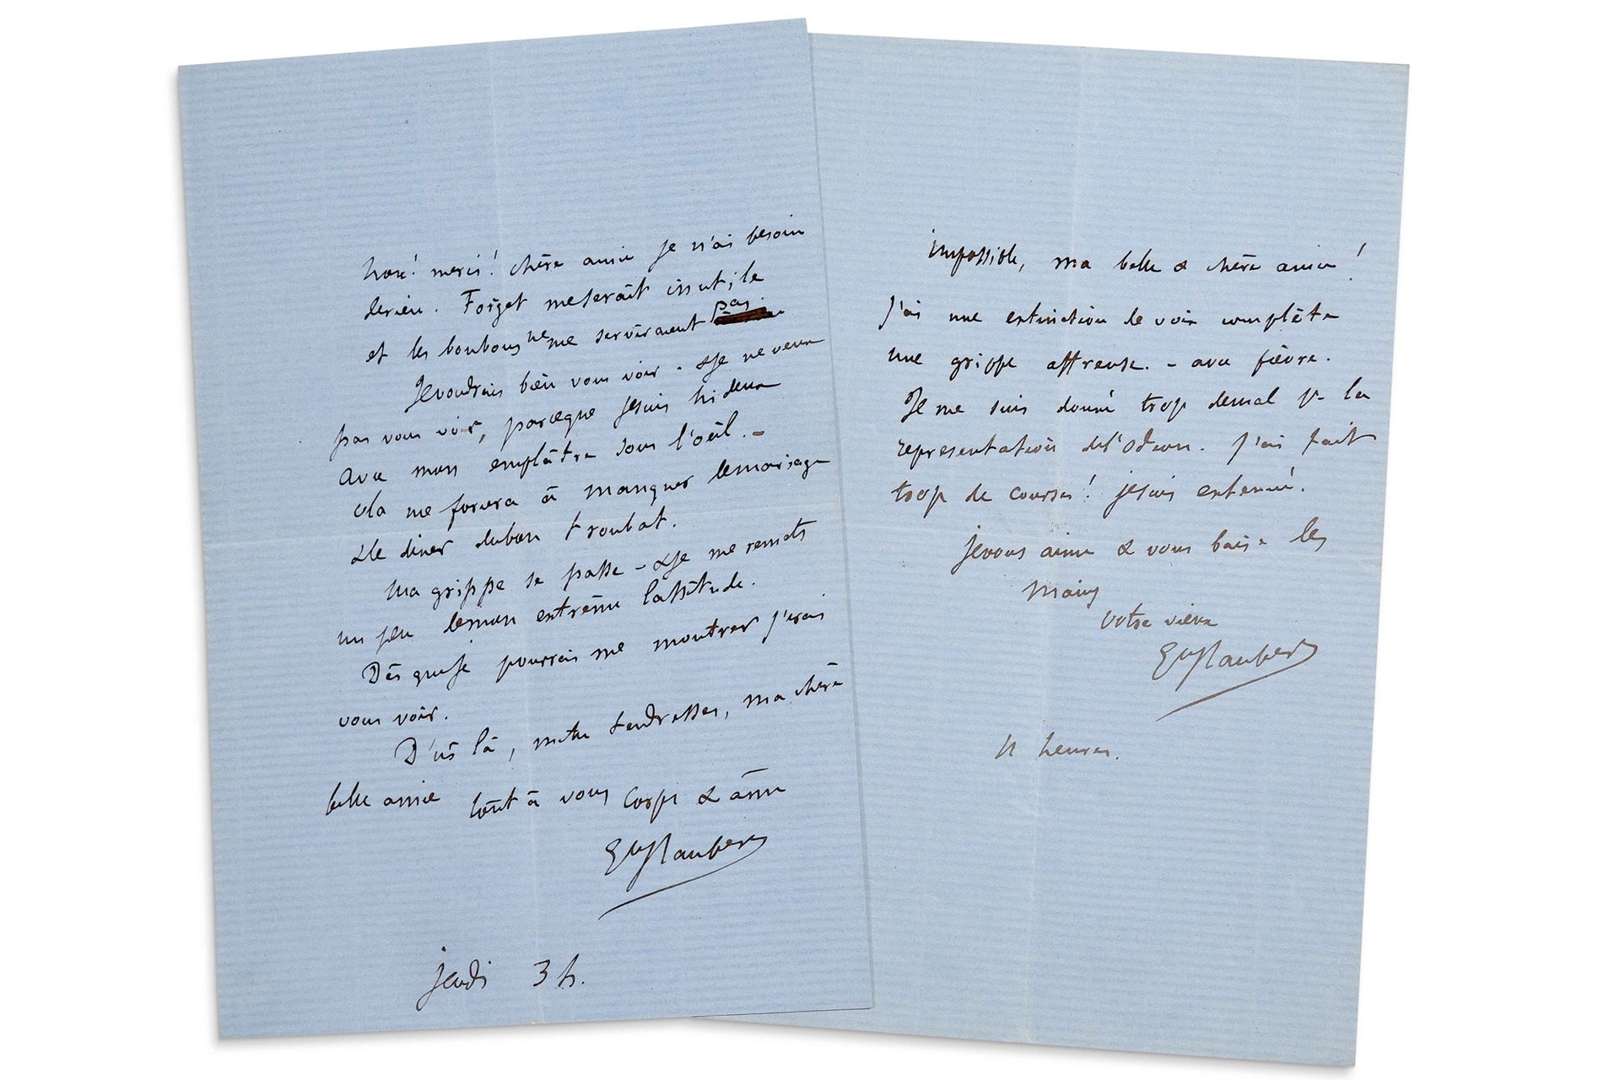 Non! merci! chère amie je n'ai besoin
de rien. Forget me serait inutile
et les bonbons ne me serviraient pas.
Je voudrais bien vous voir - & je ne veux
pas vous voir, parceque je suis hideux
avec mon emplâtre sous l'oeil. -
cela me forcera à manquer le mariage
& le diner du bon Troubat.
Ma grippe se passe - & je me remets
un peu de mon extrême lassitude.
Dès que je pourrai me montrer j'irai
vous voir.
D'ici là, mille tendresses, ma chère
belle amie tout à vous corps & âme
Gve Flaubert
jeudi 3 h.
Impossible, ma belle & chère amie!
J'ai une extinction de voix complète
une grippe affreuse. - avec fièvre.
Je me suis donné trop de mal pr la
représentation de l'Odéon. J'ai fait
trop de courses! je suis exténué.
Je vous aime & vous baise les
mains
votre vieux
Gve Flaubert
11 heures.